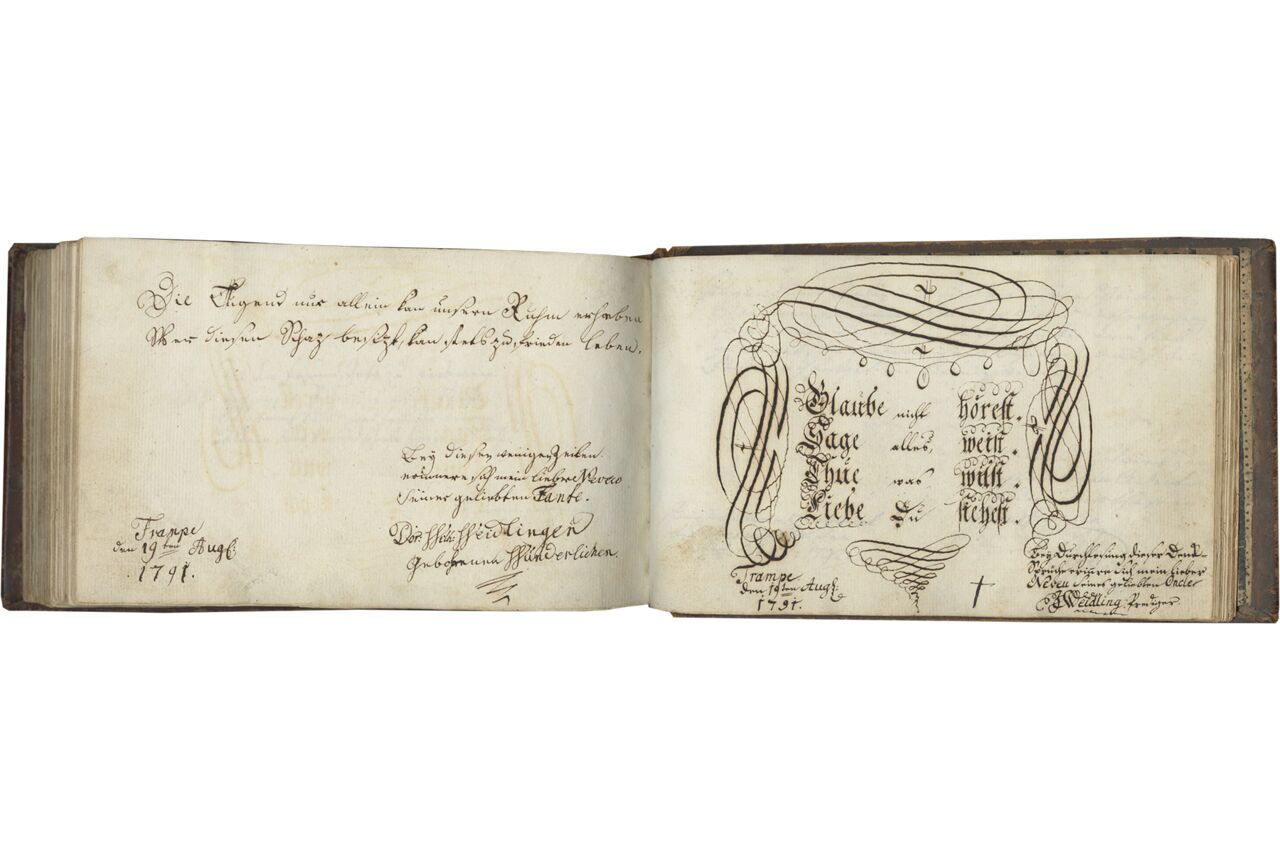 Die Tugend nur allein kan unsern Ruhm erheben
Wer diesen Schaz besizt, kan stets zufrieden leben.
Bey diesen wenigen Zeilen
erinnere sich mein lieber Neveu
seiner geliebten Tante.
Weidlingen
Gebohrenen Wünderlichen.
Trampe
den 19ten Augl:
1791.
Glaube nicht hörest.
Sage alles, weist.
Thue was wilst.
Liebe Du siehest.
Trampe
den 19ten Augl:
1791.
Bey Durchlesung dieser Denk-
Sprüche erinnre dich mein lieber
Neveu seines geliebten Oncles
Weidling Prediger